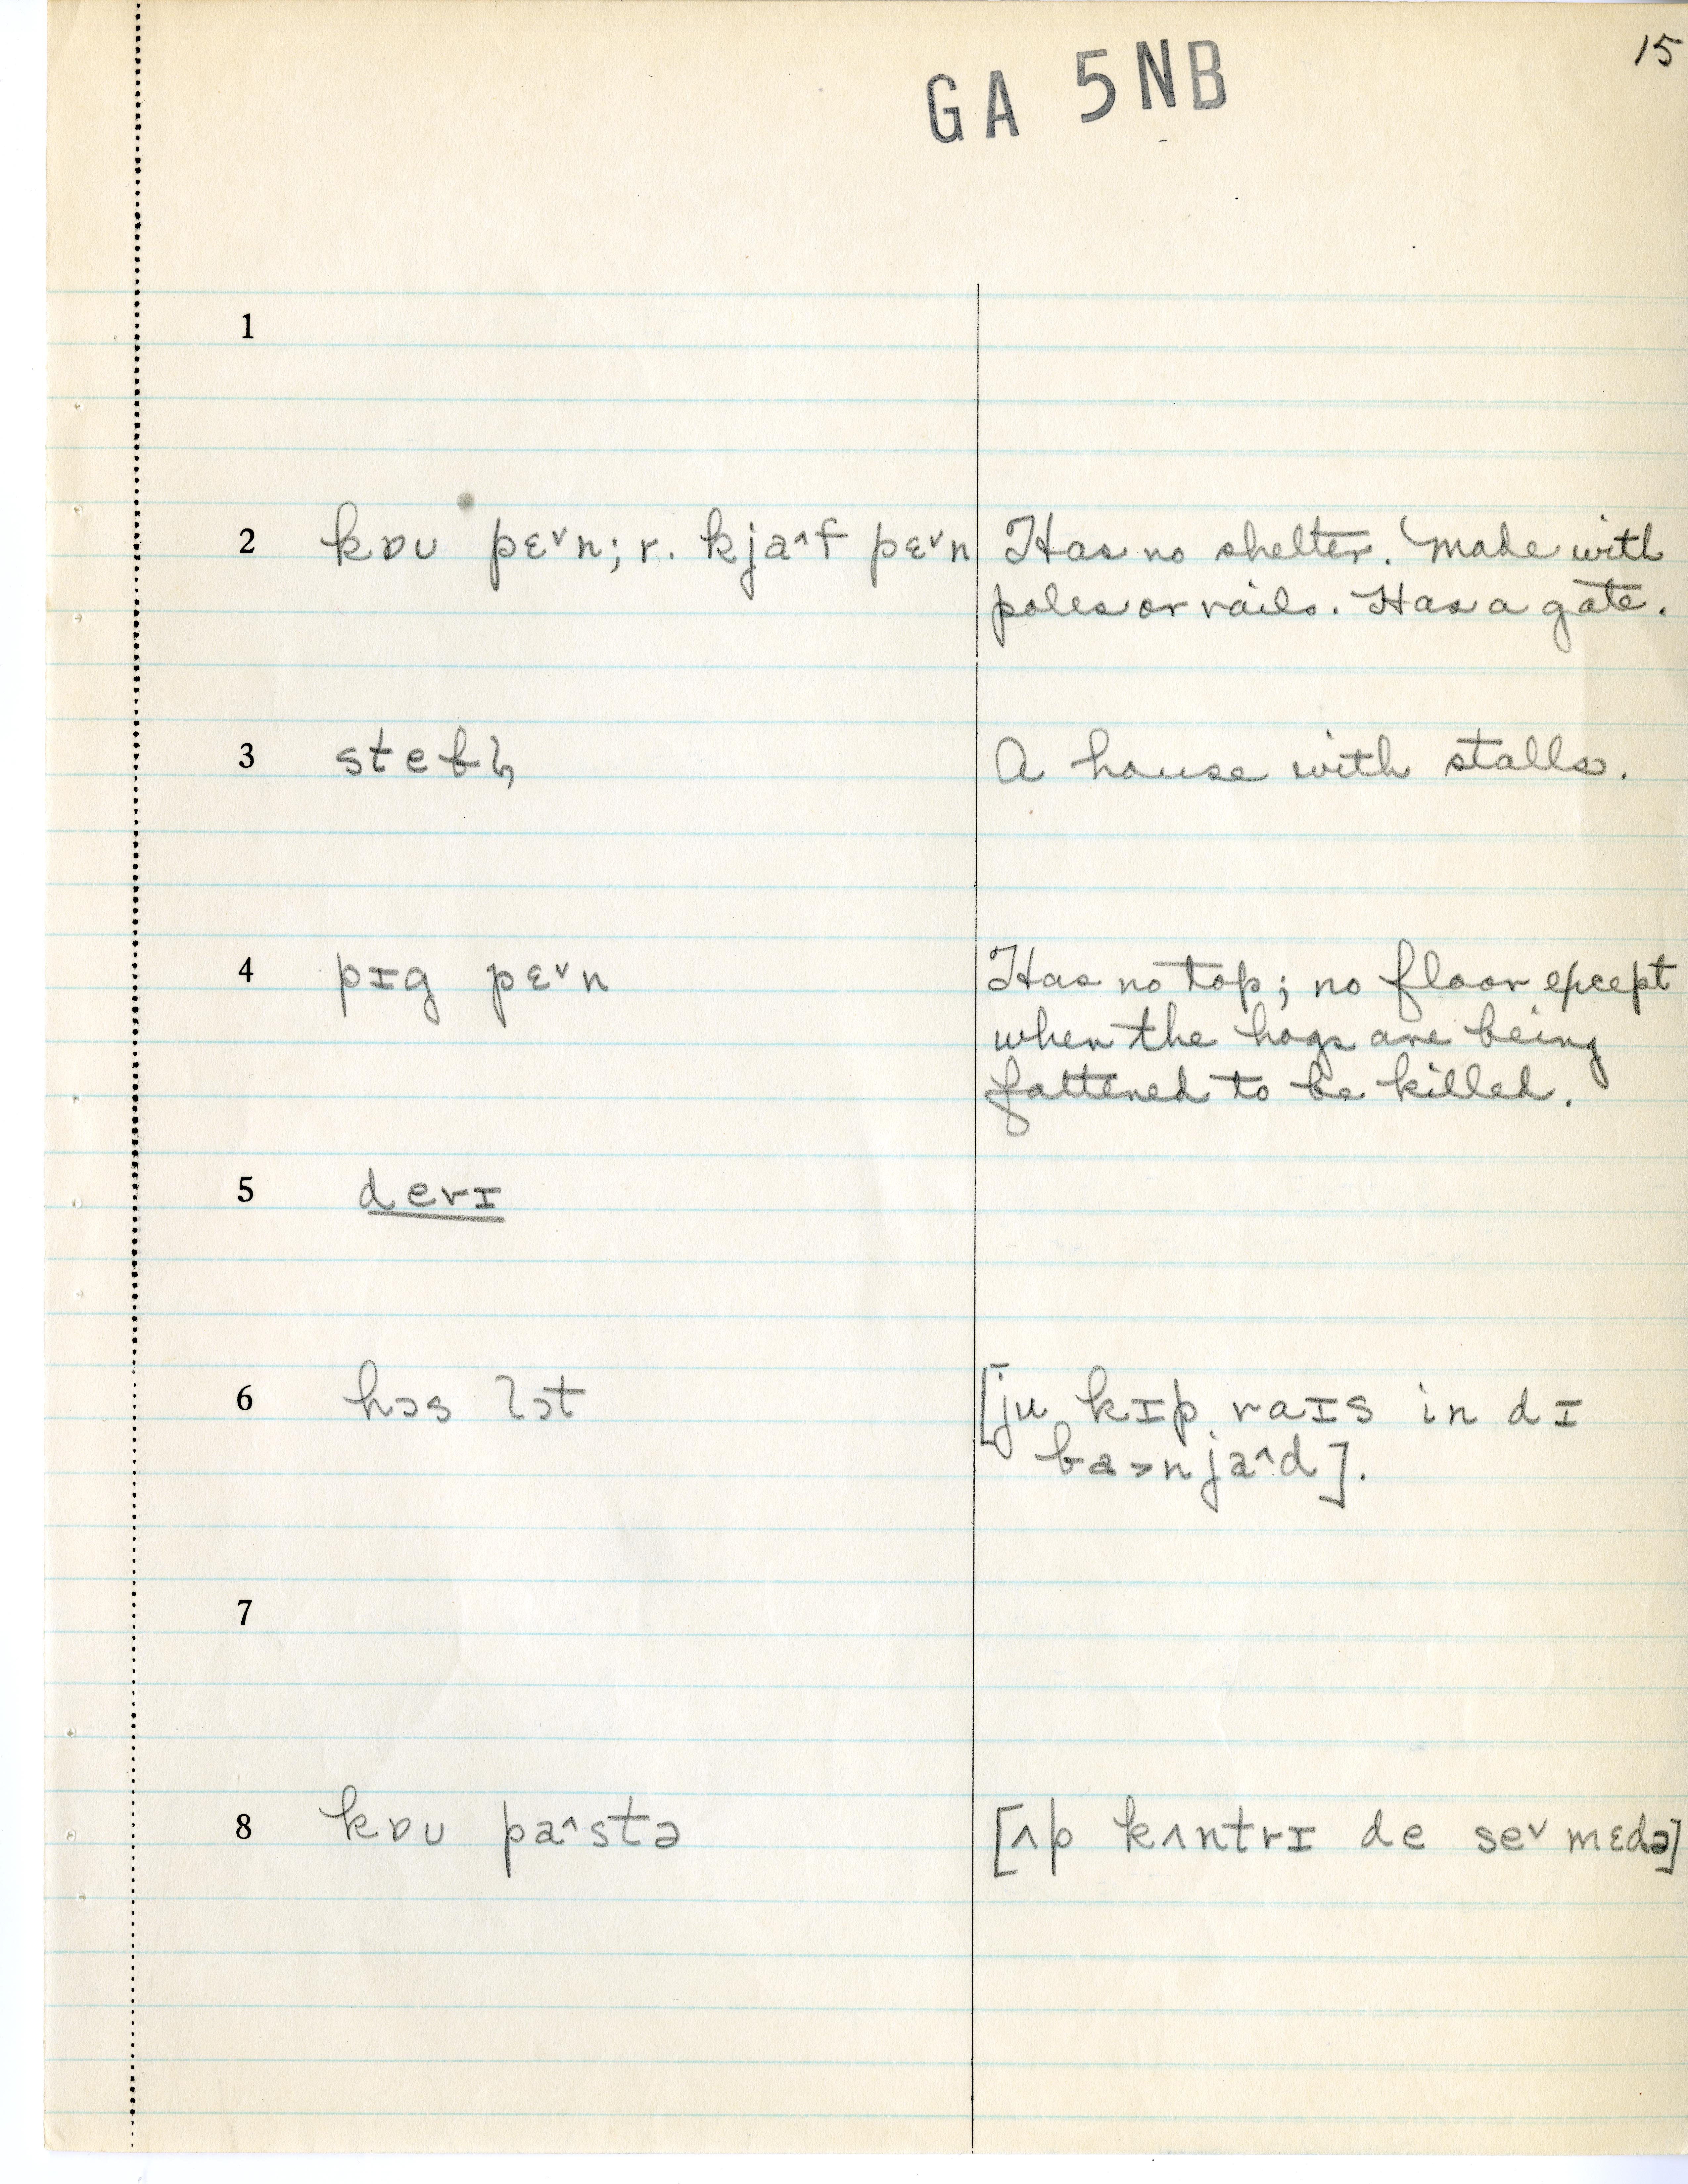 15
GA 5NB
1
2 kɒu pɛ˅n; r. kja^f pɛ˅n
Has no shelter. Made with
poles or rails. Has a gate.
3 stebl̩
A house with stalls.
4 pɪg pɛ˅n
Has no top; no floor except
when the hogs are being
fattened to be killed.
5 derɪ
6 hɔs lɔt
[ju kɪp raɪs in dɪ
ba˃nja^d].
7
8 kɒu pa^stə
[ʌp kʌntrɪ de se˅ mɛdə]